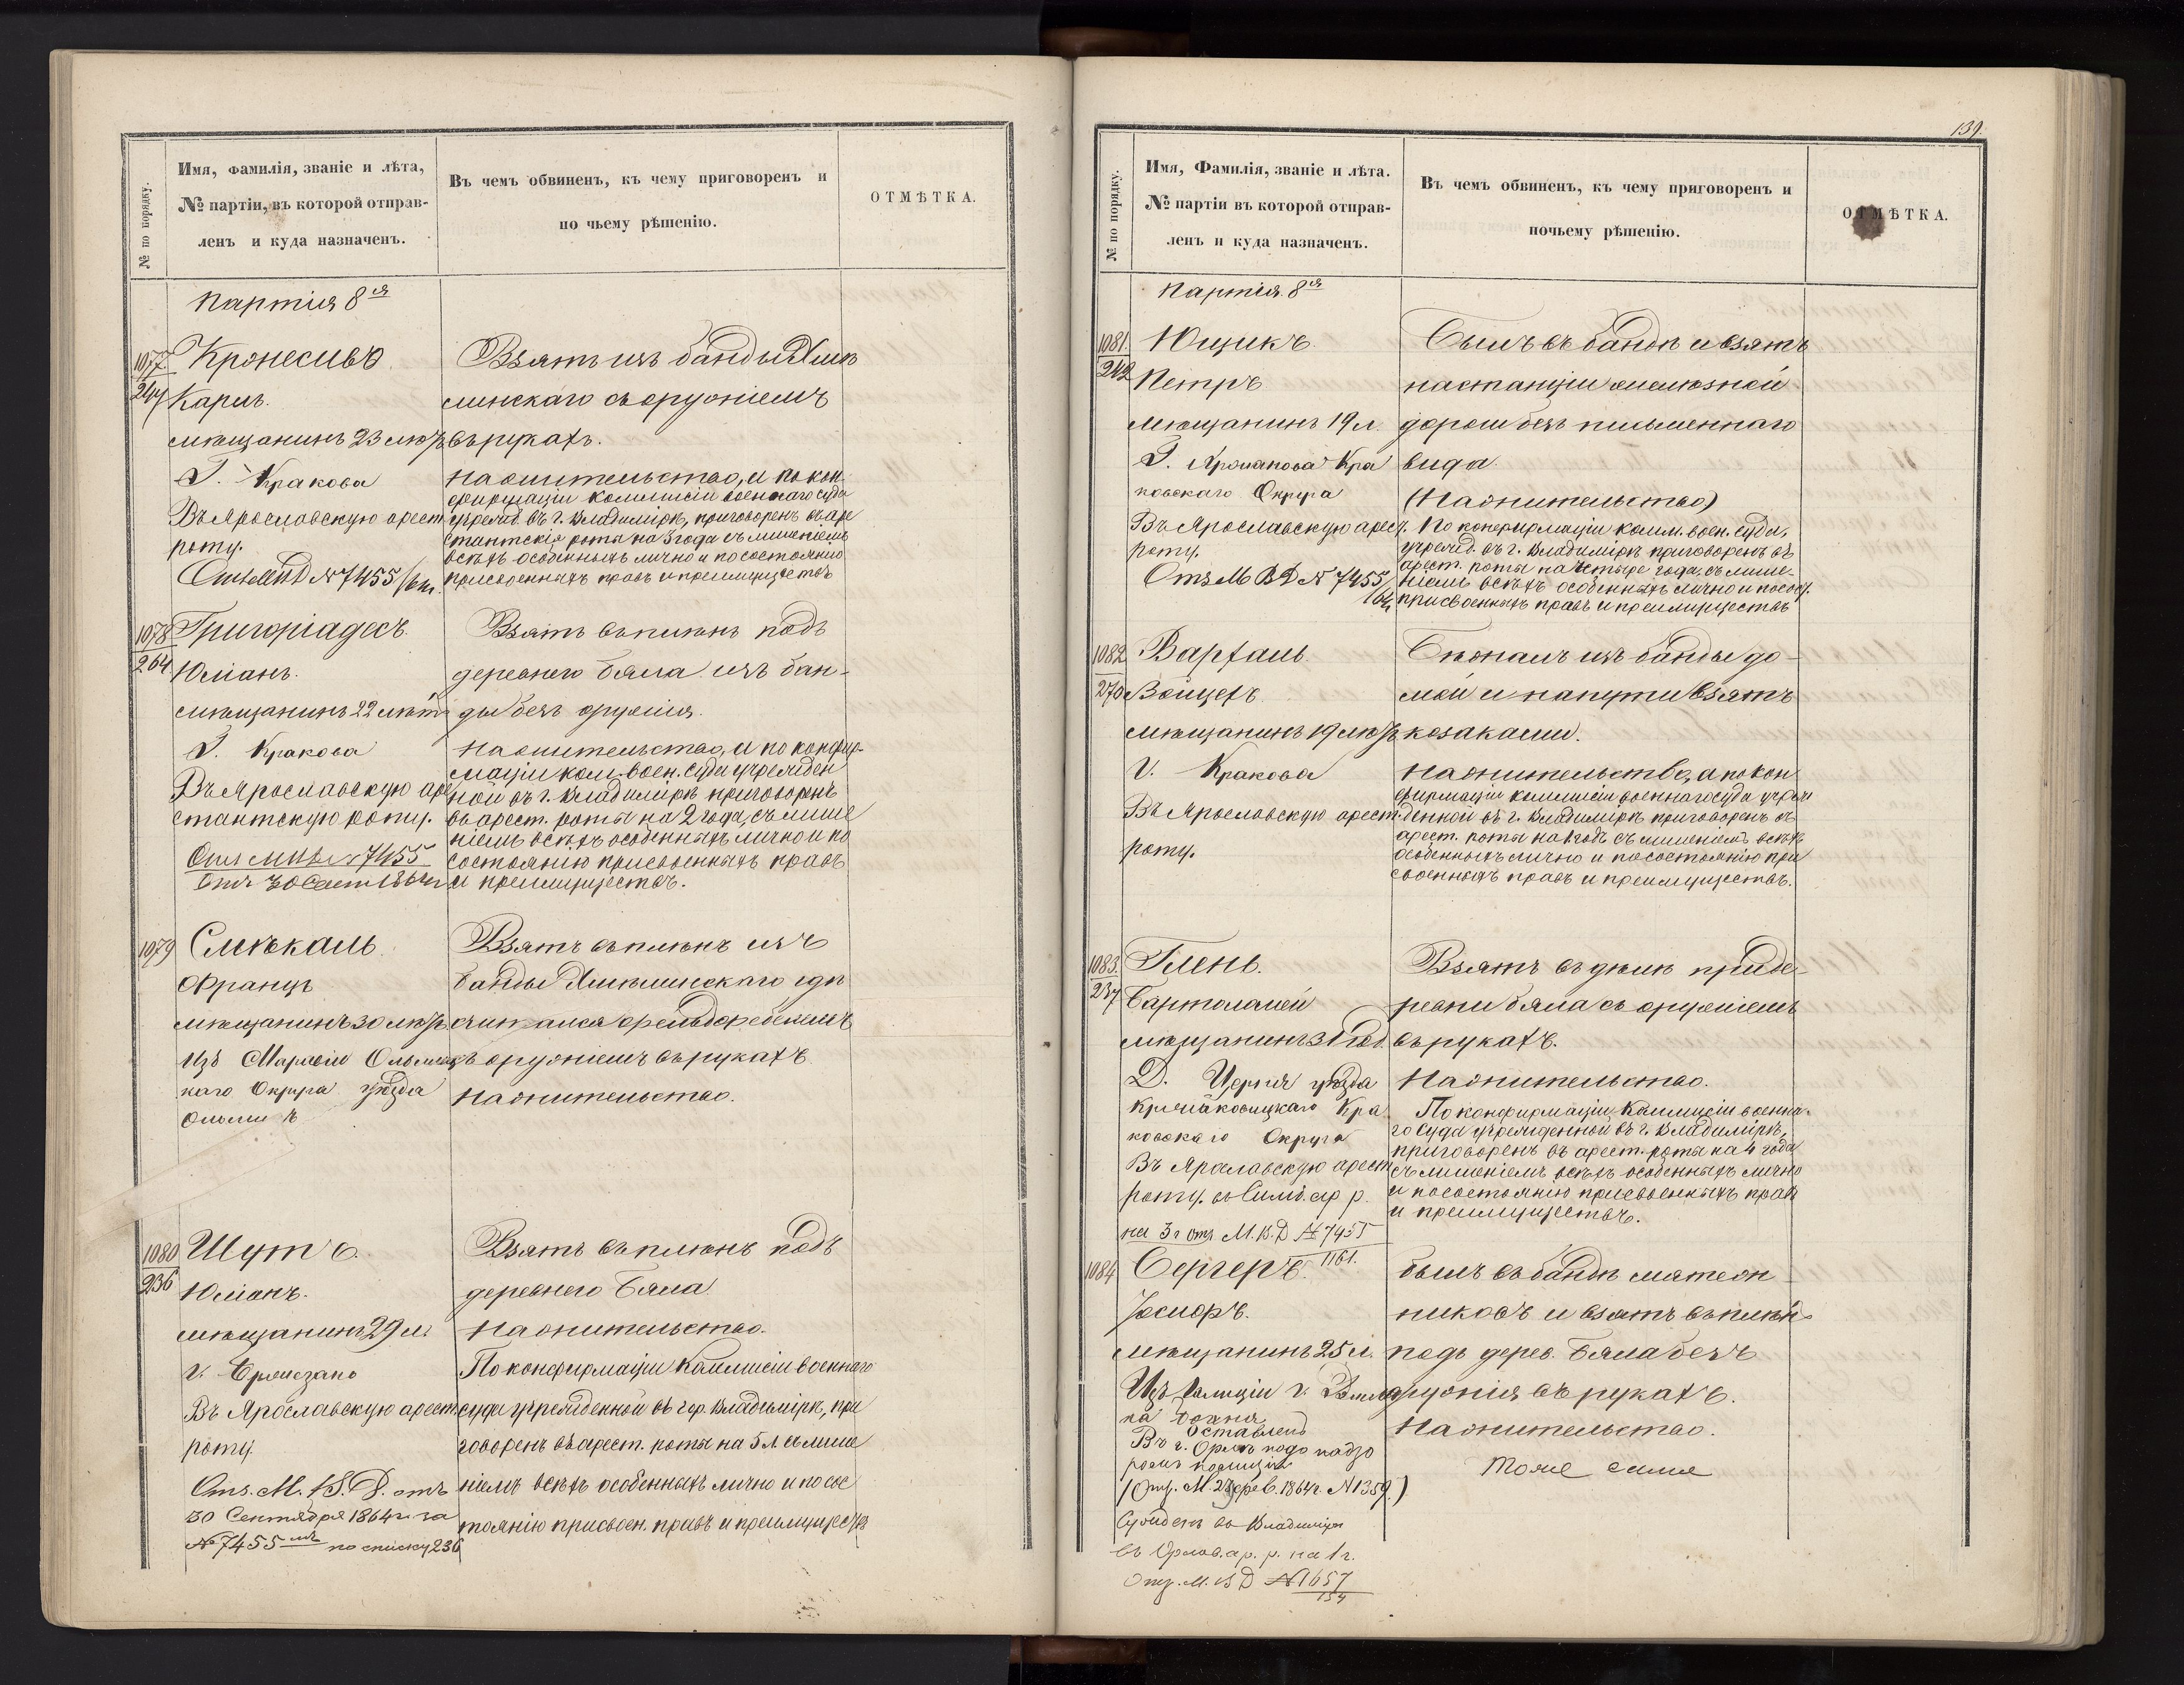 Имя, Фамилія, званіе и лѣта,
№ партіи, въ которой отправ-
ленъ и куда назначенъ.
№ по порядку.
Въ чемъ обвиненъ, къ чему приговоренъ и
по чьему рѣшенію.
ОТМѢТКА.
Партія 8ая
1077
Карлъ.
мѣщанинъ 23 лѣтъ
Г. Кракова
Въ Ярославскую арест
роту.
№ 7455
Взятъ изъ банды
линскаго съ оружіемъ
въ рукахъ.
На жительство, и по кон-
фирмаціи коммисіи военнаго суда
учрежд. въ г. Владимірѣ, приговоренъ въ аре
стантскія роты на 3 года съ лишеніемъ
всѣхъ особенныхъ лично и по состоянію
присвоенныхъ правъ и преимуществъ
1078
264
Григоріадесъ.
Юліанъ.
мѣщанинъ 22 лѣтъ
Г. Кракова
Въ Ярославскую аре
стантскую роту.
№ 7455
Взятъ въ плѣнъ подъ
деревнею Бяла изъ бан-
ды безъ оружія.
На жительство, и по конфир-
маціи ком. воен. суда учрежден
ной въ г. Владимірѣ приговоренъ
въ арест. роты на 2 года, съ лише
ніемъ всѣхъ особенныхъ лично и по
состоянію присвоенныхъ правъ
и преимуществъ.
1079
Смѣкаль
Францъ
мѣщанинъ 30 лѣтъ
Изъ
каго Округа уѣзда
Взятъ въ плѣнъ изъ
банды гдѣ
считался фельдфебелемъ
съ оружіемъ въ рукахъ
На жительство.
1080
236
Шутъ.
Юліанъ.
мѣщанинъ 29 л.
г.
Въ Ярославскую арест.
роту.
Отз. М. В. Д. отъ
30 Сентября 1864 г. за
№ 7455 по списку 236
Взятъ въ плѣнъ подъ
деревнею Бяла
На жительство.
По конфирмаціи Коммисіи военнаго
суда учрежденной въ гор. Владимірѣ, при
говоренъ въ арест. роты на 5 л. съ лише
ніемъ всѣхъ особенныхъ лично и по сос
тоянію присвоен. правъ и преимуществъ
139.
№ по порядку.
Имя, Фамилія, званіе и лѣта.
№ партіи въ которой отправ-
ленъ и куда назначенъ.
Въ чемъ обвиненъ, къ чему приговоренъ и
почьему рѣшенію.
ОТМѢТКА.
Партія 8ая
1081.
242
Ющикъ
Петръ
мѣщанинъ 19 л.
Г. Кра
ковскаго Округа
Въ Ярославскую арест.
роту.
Отз. М В Д № 7455
Былъ въ бандѣ и взятъ
на станціи желѣзной
дороги безъ письменнаго
вида.
(На жительство)
По конфирмаціи комм. воен. суда,
учрежд. въ г. Владимірѣ приговоренъ въ
арест. роты на четыре года, съ лише-
ніемъ всѣхъ особенныхъ лично и по сост.
присвоенныхъ правъ и преимуществъ
1082
270
Войцехъ.
мѣщанинъ 19 лѣтъ
г. Кракова
Въ Ярославскую арест.
роту.
Бѣжалъ изъ банды до-
мой и на пути взятъ
козаками.
На жительство, а по кон
фирмаціи коммисіи военнаго суда учреж
денной въ г. Владимірѣ приговоренъ въ
арест. роты на годъ съ лишеніемъ всѣхъ
особенныхъ лично и по состоянію при
своенныхъ правъ и преимуществъ.
1083.
237
Глень.
Бартоломей
мѣщанинъ 31 год.
Д. Церня уѣзда
Кра
ковскаго Округа
Въ Яраславскую арест
роту. въ Симб. ар. р.
на 3 г отз. М. В. Д № 7455
Взятъ въ при де-
ревни Бяла съ оружіемъ
въ рукахъ.
На жительство.
По конфирмаціи Каммисіи военна-
го суда учрежденной въ г. Владимірѣ,
приговоренъ въ арест. роты на 4 года
съ лишеніемъ всѣхъ особенныхъ лично
и по состоянію присвоенныхъ правъ
и преимуществъ.
1084
Сергеръ.
1161.
мѣщанинъ 25 л.
Изъ Галиціи г.
оставленъ
Въ г. Орлѣ подъ надзо
ромъ полиціи
(Отз. М. 28 фев. 1864 г. № 1359.)
Сужденъ во Владимірѣ
въ Орлов. ар. р. на 1 г.
Отз. М. В Д № 1657
154
былъ въ бандѣ мятеж
никовъ и взятъ въ плѣнъ
подъ дерев. Бяла безъ
оружія въ рукахъ.
На жительство.
тоже самое